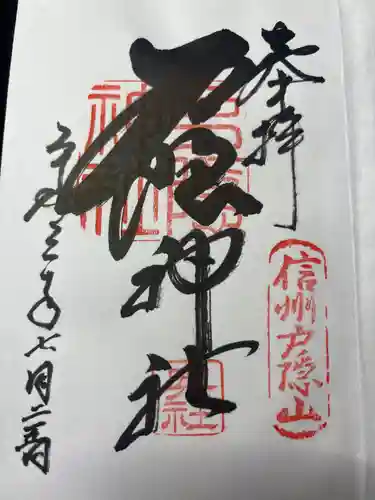 奉拝
信州戸隠山
戸隠神社
戸隠神社
令和三年七月二
日